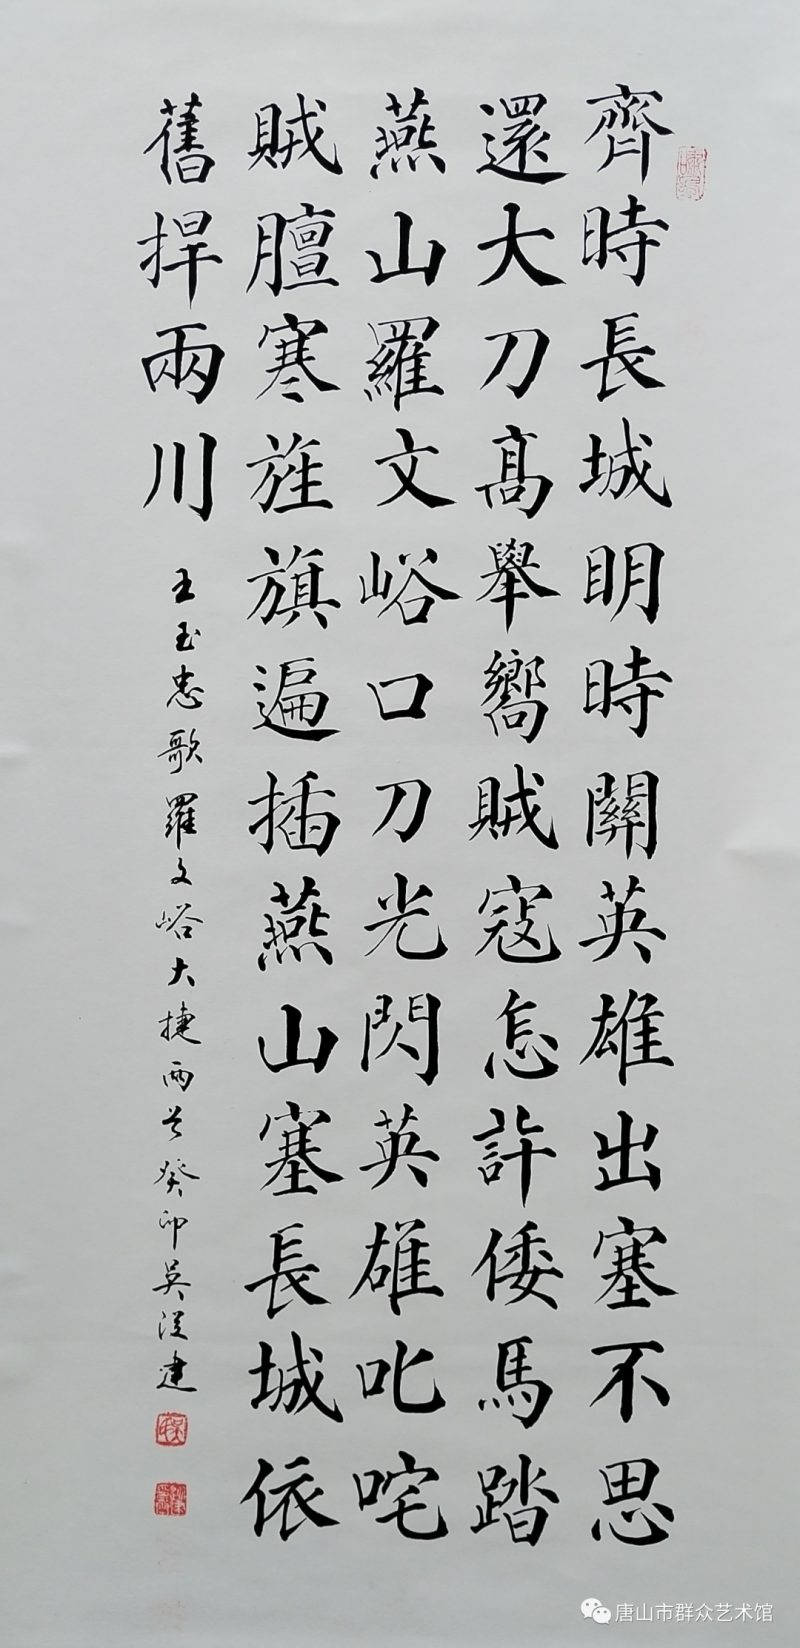 齊時長城明時關英雄出塞不思
還大刀高舉嚮賊寇怎許倭馬踏
燕山羅文峪口刀光閃英雄叱咤
賊膽寒旌旗遍插燕山塞長城依
舊捍兩川
王玉忠歌羅文峪大捷兩首癸卯吳從建
唐山市群众艺术馆